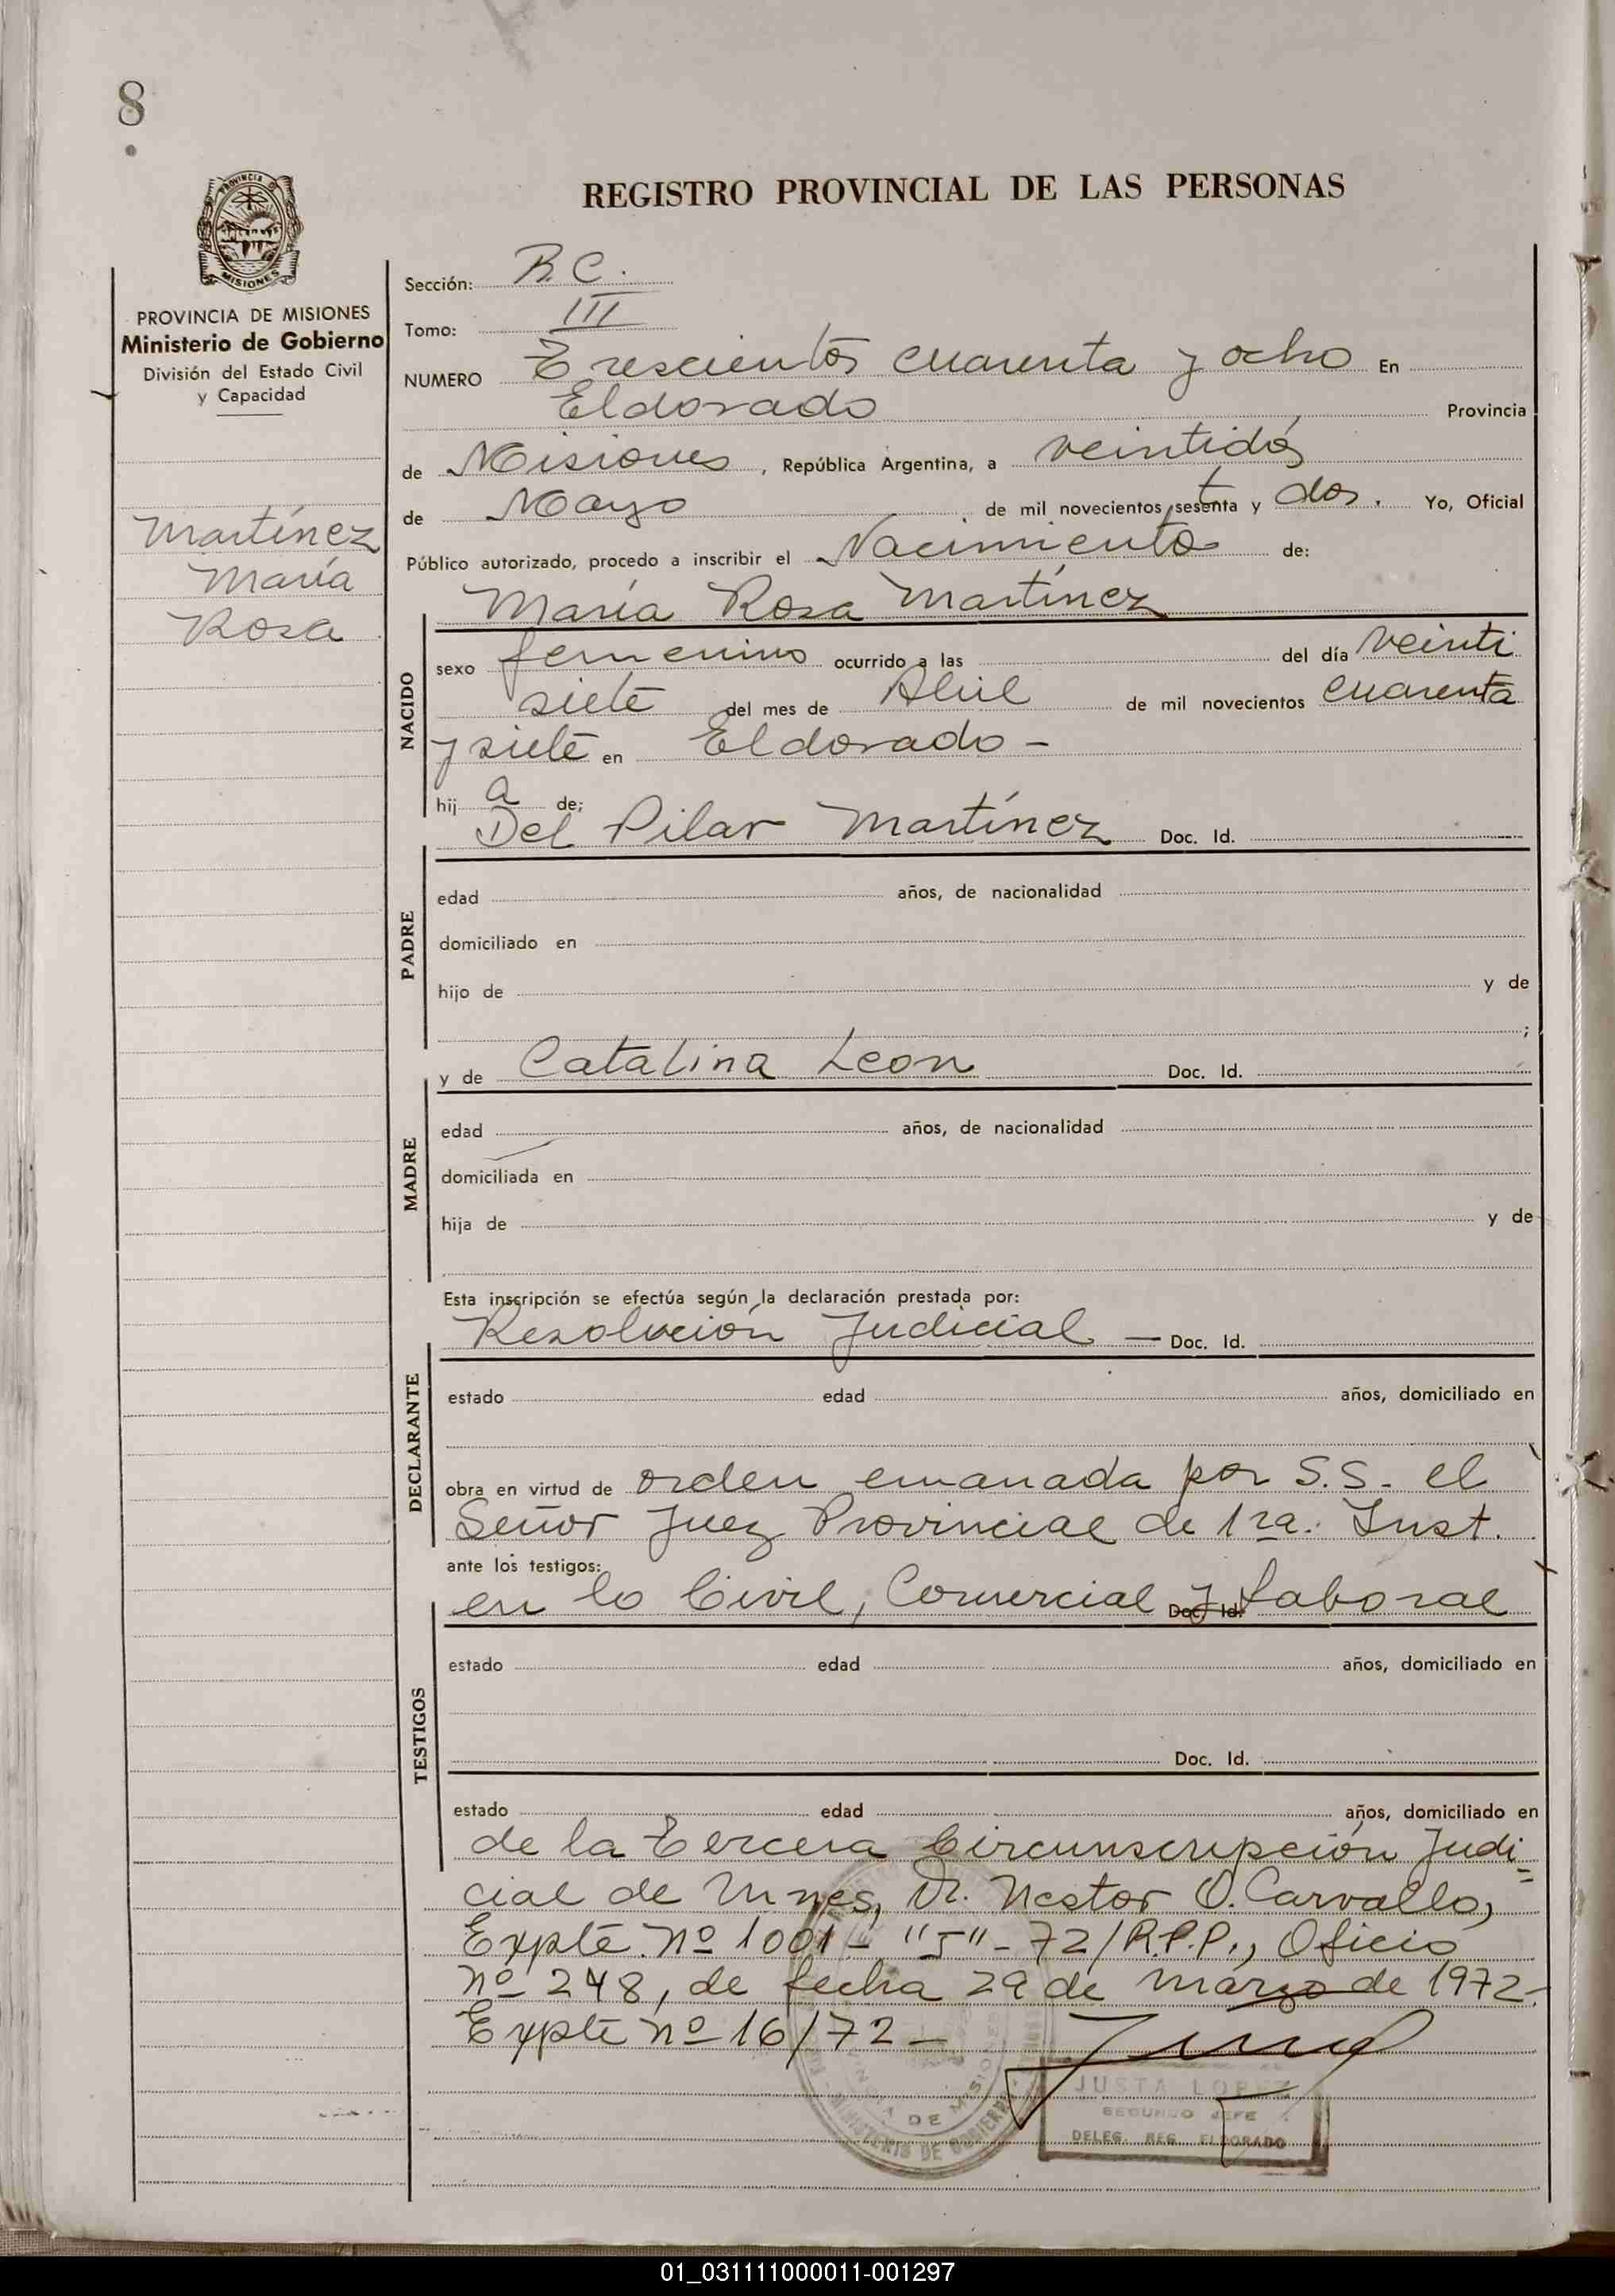 8
REGISTRO PROVINCIAL DE LAS PERSONAS
PROVINCIA DE MISIONES
PROVINCIA DE MISIONES
Ministerio de Gobierno
División del Estado Civil
y Capacidad
Martínez
María
Rosa
Sección: R.C.
Tomo: III
NUMERO Trescientos cuarenta y ocho En
Eldorado Provincia
de Misiones, República Argentina, a veintidós
de Mayo de mil novecientos setenta y dos. Yo, Oficial
Público autorizado, procedo a inscribir el Nacimiento de:
María Rosa Martínez
NACIDO
sexo femenino ocurrido a las del día veinti
siete del mes de Abril de mil novecientos cuarenta
y siete en Eldorado -
hija de:
Del Pilar Martínez Doc. Id.
PADRE
edad años, de nacionalidad
domiciliado en
hijo de y de
;
y de Catalina Leon Doc. Id.
MADRE
edad años, de nacionalidad
domiciliada en
hija de y de
Esta inscripción se efectúa según la declaración prestada por:
Resolución Judicial — Doc. Id.
DECLARANTE
estado edad años, domiciliado en
obra en virtud de orden emanada por S.S. el
Señor Juez Provincial de 1ra. Inst.
ante los testigos:
en lo Civil, Comercial y Laboral Doc. Id.
TESTIGOS
estado edad años, domiciliado en
Doc. Id.
estado edad años, domiciliado en
de la Tercera Circunscripción Judi=
cial de Mnes, Dr. Nestor O. Carvallo,
Expte. Nº 1001 - "J" - 72/R.P.P., Oficio
Nº 248, de fecha 29 de marzo de 1972-
Expte Nº 16/72 -
JUSTA LOPEZ
SEGUNDO JEFE
DELEG. REG. ELDORADO
DE MISIONES
MINISTERIO DE GOBIERNO
01_031111000011-001297